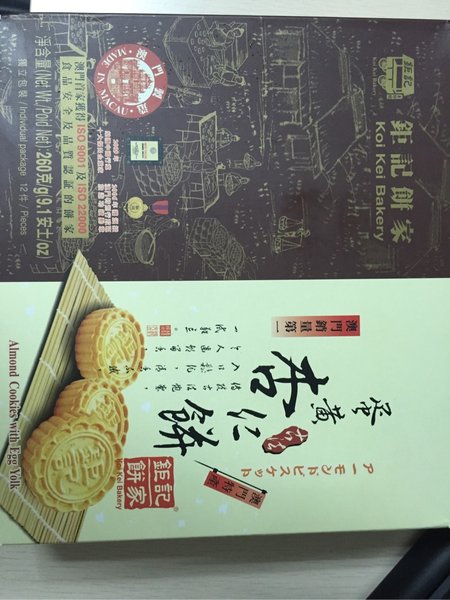 鉅記
Koi Kei Bakery
鉅記餅家
Koi Kei Bakery
澳門製造
MADE IN MACAU
澳門首家獲得 ISO 9001 及 ISO 22000
食品安全及品質認証的餅家
淨含量(Net Wt./Poid Net): 260克/g(9.1安士/oz)
獨立包裝 / Individual package 12 件 / Pieces
澳門銷量第一
蛋黃
杏仁餅
アーモンドビスケット
澳門特產
鉅記
餅家
Koi Kei Bakery
Almond Cookies with Egg Yolk